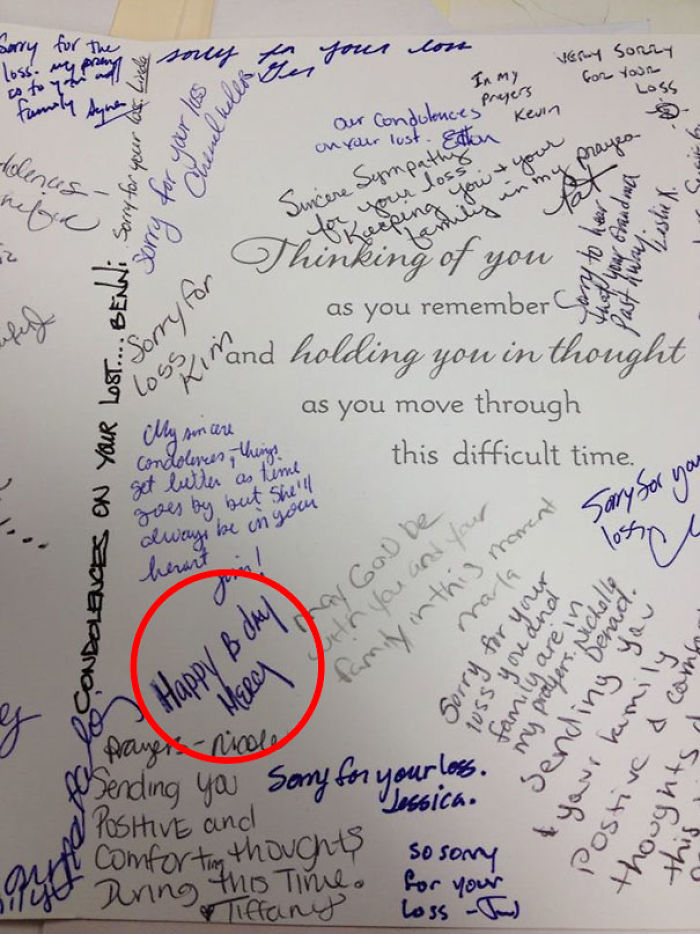 Sorry for the
loss. my prayers
go to you and
family Agnes
sorry for your loss
Sorry for your loss. Linda
Sorry for your loss
In my
prayers
Kevin
VERY SORRY
FOR YOUR
LOSS
our Condolences
on your lost.
Sincere Sympathy
for your loss.
Keeping you & your
family in my prayers
Pat
Sorry to hear
that your Grandma
Past away.
Leslie K.
Thinking of you
as you remember
and holding you in thought
as you move through
this difficult time.
CONDOLENCES ON YOUR LOST.... BENNi
Sorry for
loss
Kim
My sincere
condolences, things
get better as time
goes by but she'll
always be in your
heart
Happy B day
Mercy
may GOD be
with you and your
family in this moment
marla
Sorry for your
loss
Sorry for your
loss you and
family are in
my prayers. Nicholly
Denard.
Sending you
& your family
Postive &
thoughts
this
prayers - Nicole
Sending you
POSITIVE and
Comforting thoughts
During this Time.
♥ Tiffany
Sorry for your loss.
Jessica.
so sorry
for your
loss